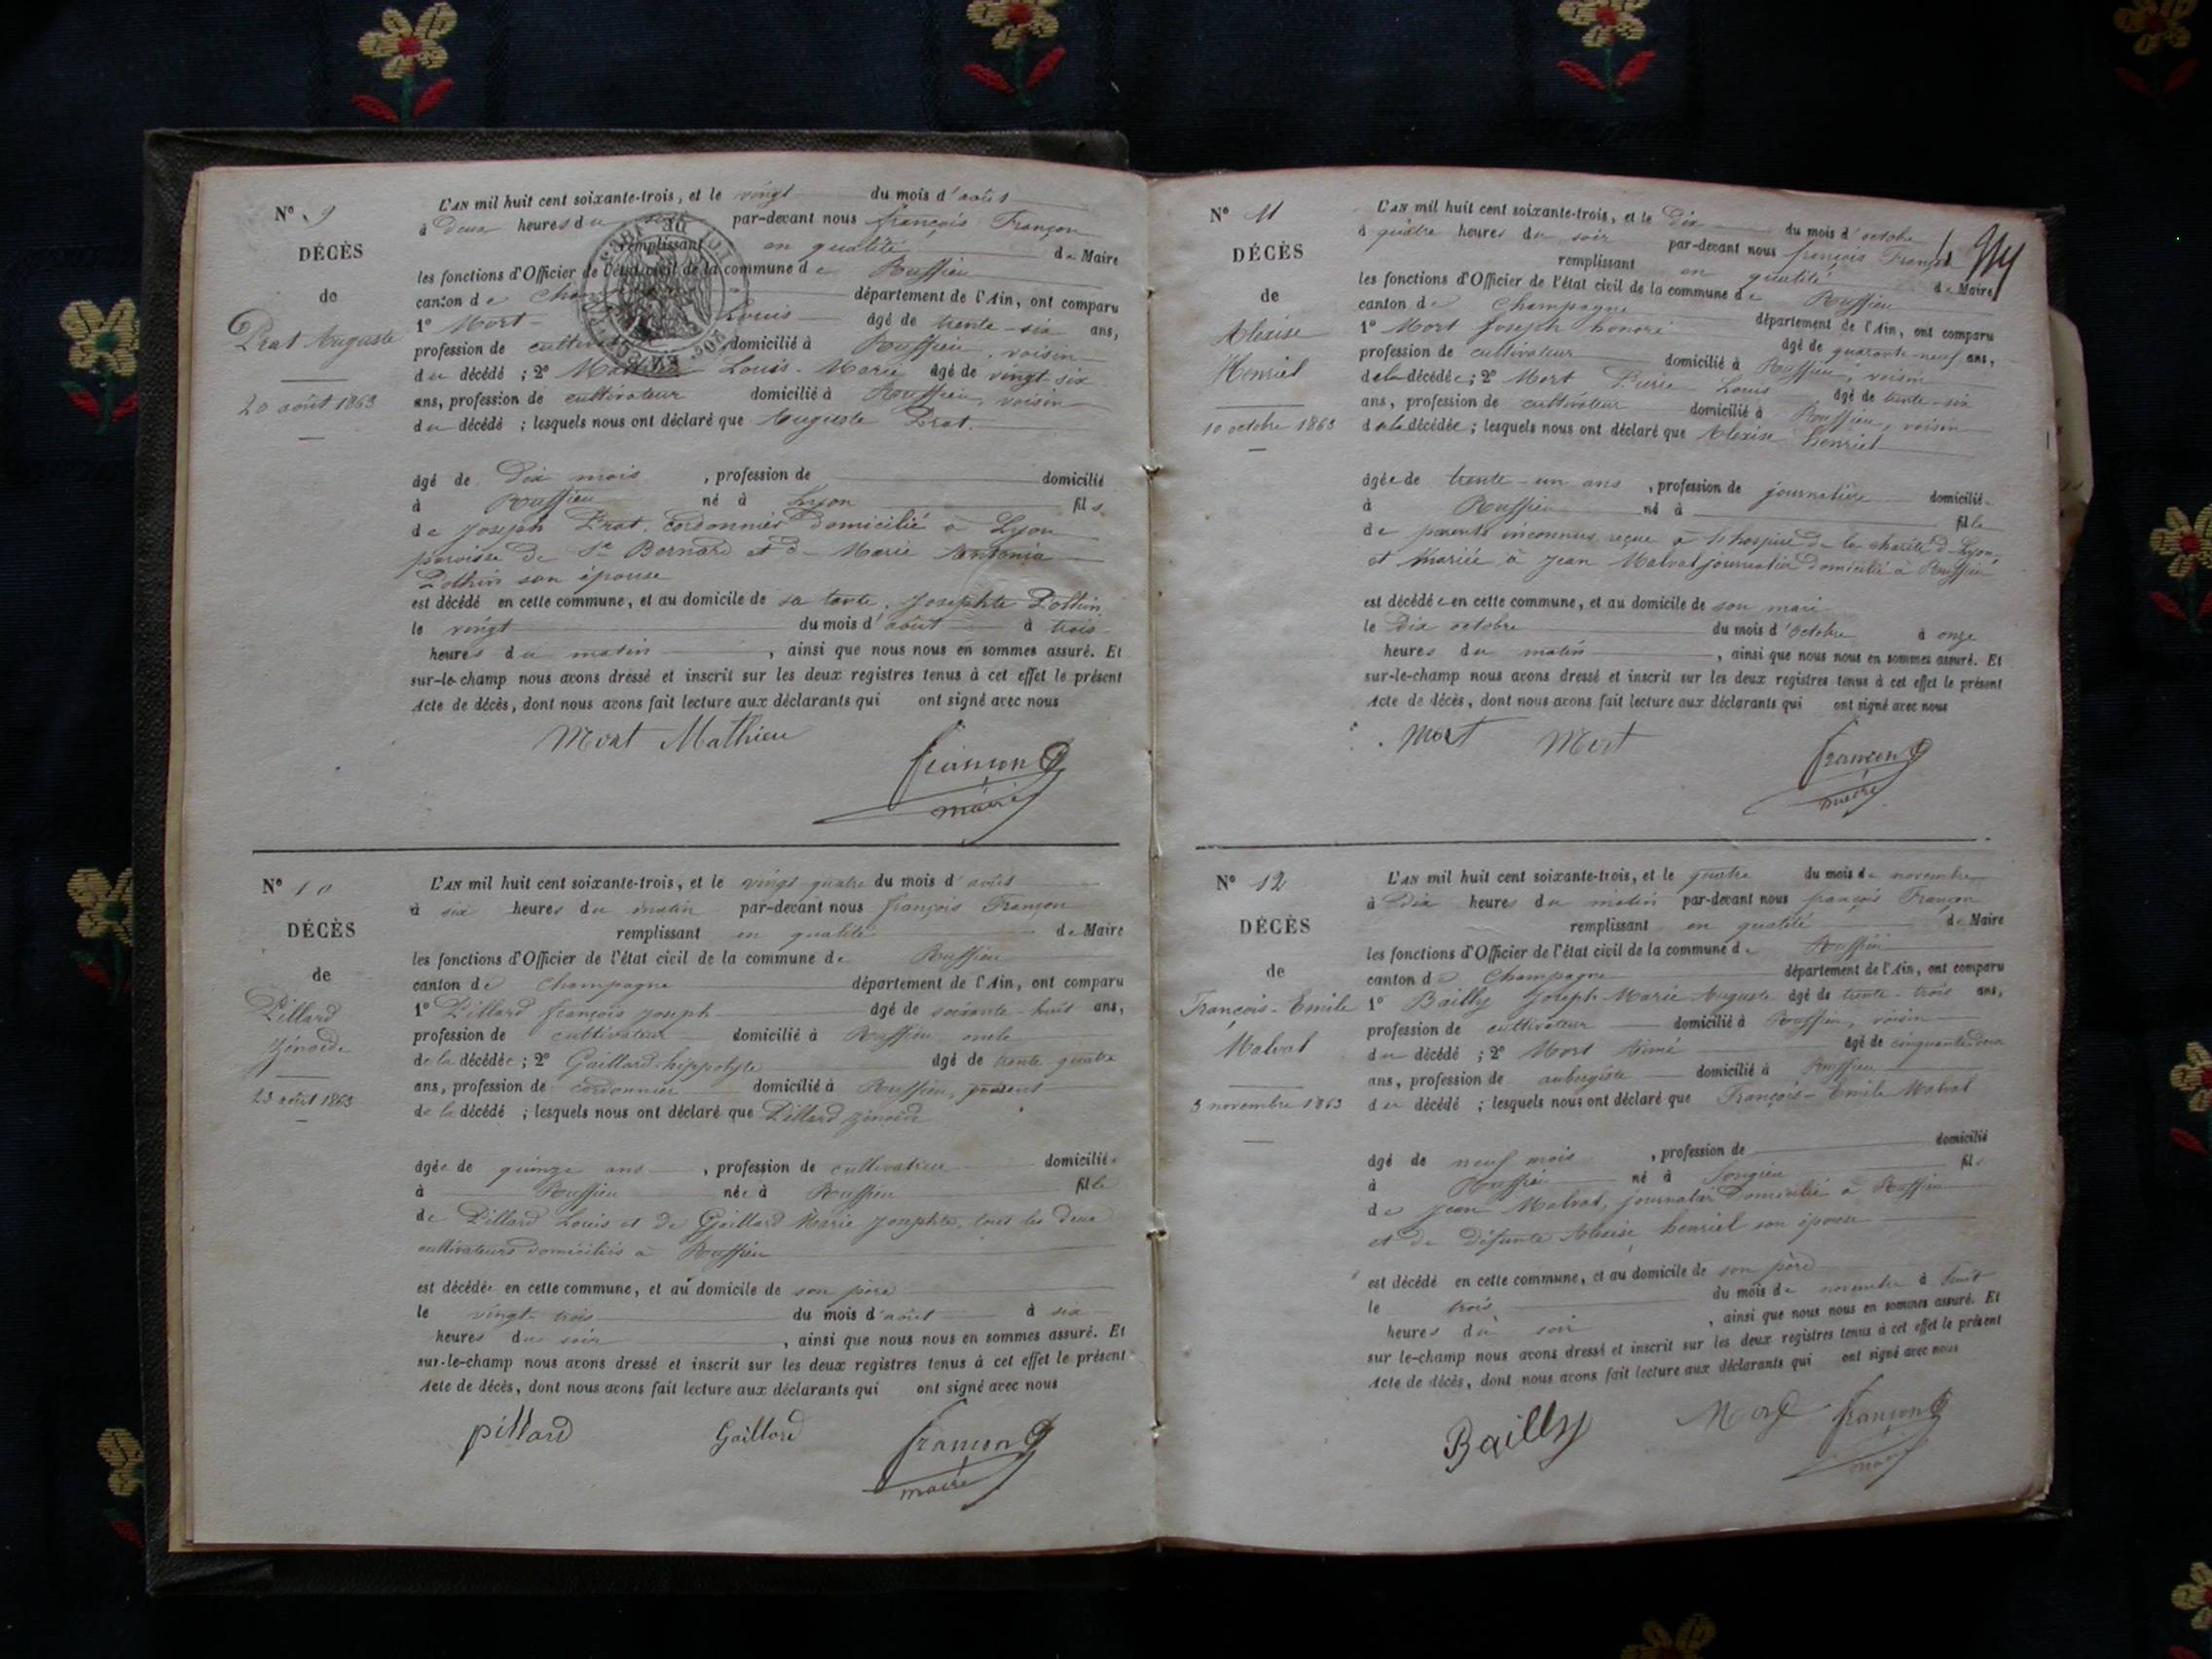 N° 9
DÉCÈS
de
Prat Auguste
20 août 1863
L'AN mil huit cent soixante-trois, et le vingt du mois d'août
à deux heures du soir par-devant nous françois Françon
remplissant en qualité de Maire
les fonctions d'Officier de l'état civil de la commune de Ruffieu
canton de département de l'Ain, ont comparu
1° Mort Louis âgé de trente-six ans,
profession de cultivateur domicilié à Ruffieu, voisin
du décédé ; 2° Louis-Marie âgé de vingt-six
ans, profession de cultivateur domicilié à Ruffieu, voisin
du décédé ; lesquels nous ont déclaré que Auguste Prat.
âgé de Dix mois , profession de domicilié
à Ruffieu né à Lyon fils
de Joseph Prat, cordonnier domicilié à Lyon
paroisse de St Bernard et de Marie Antonia
son épouse
est décédé en cette commune, et au domicile de sa tante, Josephte
le vingt du mois d'août à trois
heures du matin , ainsi que nous nous en sommes assuré. Et
sur-le-champ nous avons dressé et inscrit sur les deux registres tenus à cet effet le présent
Acte de décès, dont nous avons fait lecture aux déclarants qui ont signé avec nous
Mort Mathieu
françon
maire
N° 10
DÉCÈS
de
Pillard
Zénoïde
23 août 1863
L'AN mil huit cent soixante-trois, et le vingt quatre du mois d'août
à six heures du matin par-devant nous françois Françon
remplissant en qualité de Maire
les fonctions d'Officier de l'état civil de la commune de Ruffieu
canton de Champagne département de l'Ain, ont comparu
1° Pillard françois joseph âgé de soixante-huit ans,
profession de cultivateur domicilié à Ruffieu oncle
de la décédée ; 2° Gaillard hippolyte âgé de trente quatre
ans, profession de cordonnier domicilié à Ruffieu,
de la décédé ; lesquels nous ont déclaré que Pillard Zénoïde
âgée de quinze ans , profession de cultivatrice domiciliée
à Ruffieu née à Ruffieu fille
de Pillard Louis et de Gaillard Marie josephte, tous les deux
cultivateurs domiciliés à Ruffieu
est décédée en cette commune, et au domicile de son père
le vingt-trois du mois d'août à six
heures du soir , ainsi que nous nous en sommes assuré. Et
sur-le-champ nous avons dressé et inscrit sur les deux registres tenus à cet effet le présent
Acte de décès, dont nous avons fait lecture aux déclarants qui ont signé avec nous
pillard Gaillard françon
maire
N° 11
DÉCÈS
de
Alexise
Henriel
10 octobre 1863
L'AN mil huit cent soixante-trois, et le Dix du mois d'octobre
à quatre heures du soir par-devant nous françois Françon
remplissant en qualité de Maire
les fonctions d'Officier de l'état civil de la commune de Ruffieu
canton de Champagne département de l'Ain, ont comparu
1° Mort Joseph honoré âgé de quarante-neuf ans,
profession de cultivateur domicilié à Ruffieu, voisin
de la décédée ; 2° Mort Louis âgé de trente-six
ans, profession de cultivateur domicilié à Ruffieu, voisin
de la décédée ; lesquels nous ont déclaré que Alexise henriel
âgée de trente-un ans , profession de journalière domiciliée
à Ruffieu né à fille
de parents inconnus reçue à l'hospice de la charité de Lyon
et Mariée à Jean Malval journalier domicilié à Ruffieu
est décédée en cette commune, et au domicile de son mari
le Dix octobre du mois d'Octobre à onze
heures du matin , ainsi que nous nous en sommes assuré. Et
sur-le-champ nous avons dressé et inscrit sur les deux registres tenus à cet effet le présent
Acte de décès, dont nous avons fait lecture aux déclarants qui ont signé avec nous
Mort Mort françon
maire
N° 12
DÉCÈS
de
François-Emile
Malval
3 novembre 1863
L'AN mil huit cent soixante-trois, et le quatre du mois de novembre
à Dix heures du matin par-devant nous françois Françon
remplissant en qualité de Maire
les fonctions d'Officier de l'état civil de la commune de Ruffieu
canton de Champagne département de l'Ain, ont comparu
1° Bailly Joseph-Marie-Auguste âgé de trente-trois ans,
profession de cultivateur domicilié à Ruffieu, voisin
du décédé ; 2° Mort Aimé âgé de cinquante-deux
ans, profession de aubergiste domicilié à Ruffieu
du décédé ; lesquels nous ont déclaré que François-Emile Malval
âgé de neuf mois , profession de domicilié
à Ruffieu né à Songieu fils
de Jean Malval, journalier Domicilié à Ruffieu
et de Défunte Alexise henriel son épouse
est décédé en cette commune, et au domicile de son père
le trois du mois de novembre à huit
heures du soir , ainsi que nous nous en sommes assuré. Et
sur le-champ nous avons dressé et inscrit sur les deux registres tenus à cet effet le présent
Acte de décès, dont nous avons fait lecture aux déclarants qui ont signé avec nous
Bailly Mort françon